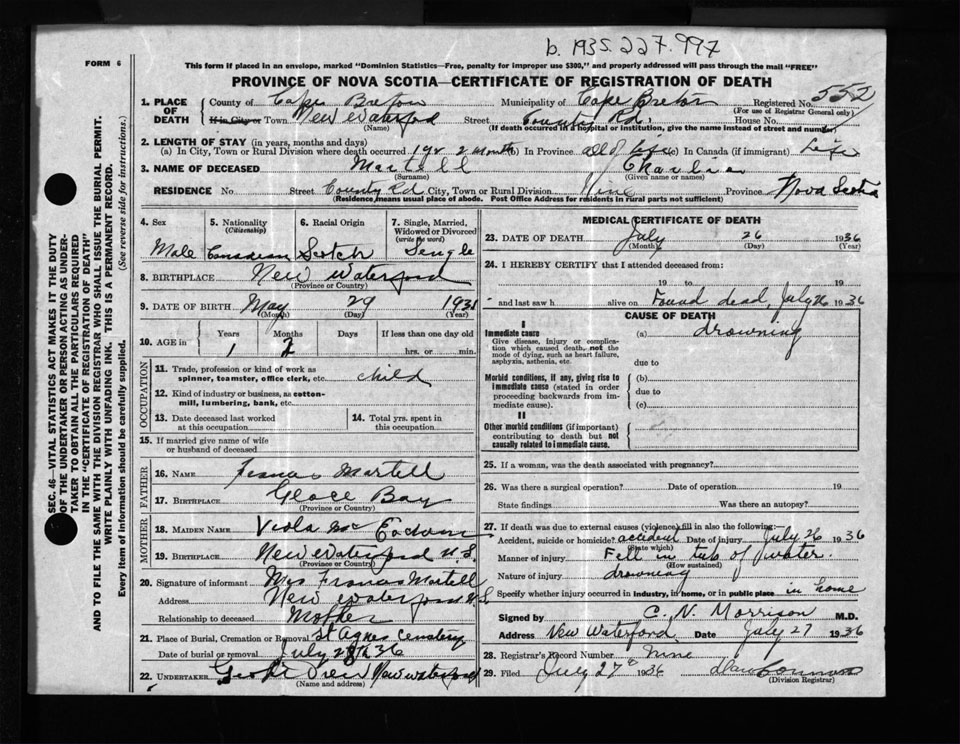 b. 1935.227.997
FORM 6
This form if placed in an envelope, marked "Dominion Statistics—Free, penalty for improper use $300," and properly addressed will pass through the mail "FREE"
PROVINCE OF NOVA SCOTIA—CERTIFICATE OF REGISTRATION OF DEATH
SEC. 46—VITAL STATISTICS ACT MAKES IT THE DUTY
OF THE UNDERTAKER OR PERSON ACTING AS UNDER-
TAKER TO OBTAIN ALL THE PARTICULARS REQUIRED
IN THE "CERTIFICATE OF REGISTRATION OF DEATH"
AND TO FILE THE SAME WITH THE DIVISION REGISTRAR WHO SHALL ISSUE THE BURIAL PERMIT.
WRITE PLAINLY WITH UNFADING INK. THIS IS A PERMANENT RECORD.
Every item of information should be carefully supplied. (See reverse side for instructions.)
1. PLACE OF DEATH County of Cape Breton Municipality of Cape Breton Registered No. 552
(For use of Registrar General only)
If in City or Town New Waterford Street County Rd. House No.
(Name) (If death occurred in a hospital or institution, give the name instead of street and number)
2. LENGTH OF STAY (in years, months and days)
(a) In City, Town or Rural Division where death occurred 1 yr 2 months (b) In Province all of life (c) In Canada (if immigrant) Life
3. NAME OF DECEASED Martell Charlie
(Surname) (Given name or names)
RESIDENCE No. Street County Rd City, Town or Rural Division Province Nova Scotia
(Residence means usual place of abode. Post Office Address for residents in rural parts not sufficient)
4. Sex Male
5. Nationality (Citizenship) Canadian
6. Racial Origin Scotch
7. Single, Married, Widowed or Divorced (write the word) Single
8. BIRTHPLACE New Waterford
(Province or Country)
9. DATE OF BIRTH May 29 193
(Month) (Day) (Year)
10. AGE in Years 1 Months 2 Days If less than one day old hrs. or min.
OCCUPATION
11. Trade, profession or kind of work as spinner, teamster, office clerk, etc. child
12. Kind of industry or business, as cotton-mill, lumbering, bank, etc.
13. Date deceased last worked at this occupation
14. Total yrs. spent in this occupation
15. If married give name of wife or husband of deceased
FATHER
16. NAME Francis Martell
17. BIRTHPLACE Glace Bay
(Province or Country)
MOTHER
18. MAIDEN NAME Viola Mc
19. BIRTHPLACE New Waterford N.S.
(Province or Country)
20. Signature of informant Mrs Francis Martell
Address New Waterford N.S
Relationship to deceased Mother
21. Place of Burial, Cremation or Removal St Agnes Cemetery
Date of burial or removal July 28th 36
22. UNDERTAKER New Waterford
(Name and address)
MEDICAL CERTIFICATE OF DEATH
23. DATE OF DEATH July 26 1936
(Month) (Day) (Year)
24. I HEREBY CERTIFY that I attended deceased from:
19 to 19
and last saw h alive on Found dead, July 26 1936
CAUSE OF DEATH
I
Immediate cause
Give disease, injury or complication which caused death, not the mode of dying, such as heart failure, asphyxia, asthenia, etc.
(a) drowning
due to
Morbid conditions, if any, giving rise to immediate cause (stated in order proceeding backwards from immediate cause).
(b)
due to
(c)
II
Other morbid conditions (if important) contributing to death but not causally related to immediate cause.
25. If a woman, was the death associated with pregnancy?
26. Was there a surgical operation? Date of operation 19
State findings Was there an autopsy?
27. If death was due to external causes (violence) fill in also the following:—
Accident, suicide or homicide? accident Date of injury July 26 1936
(State which)
Manner of injury Fell in tub of water.
(How sustained)
Nature of injury drowning
Specify whether injury occurred in industry, in home, or in public place in home
Signed by C. N. Morrison M.D.
Address New Waterford Date July 27 1936
28. Registrar's Record Number Nine
29. Filed July 27th 1936
(Division Registrar)